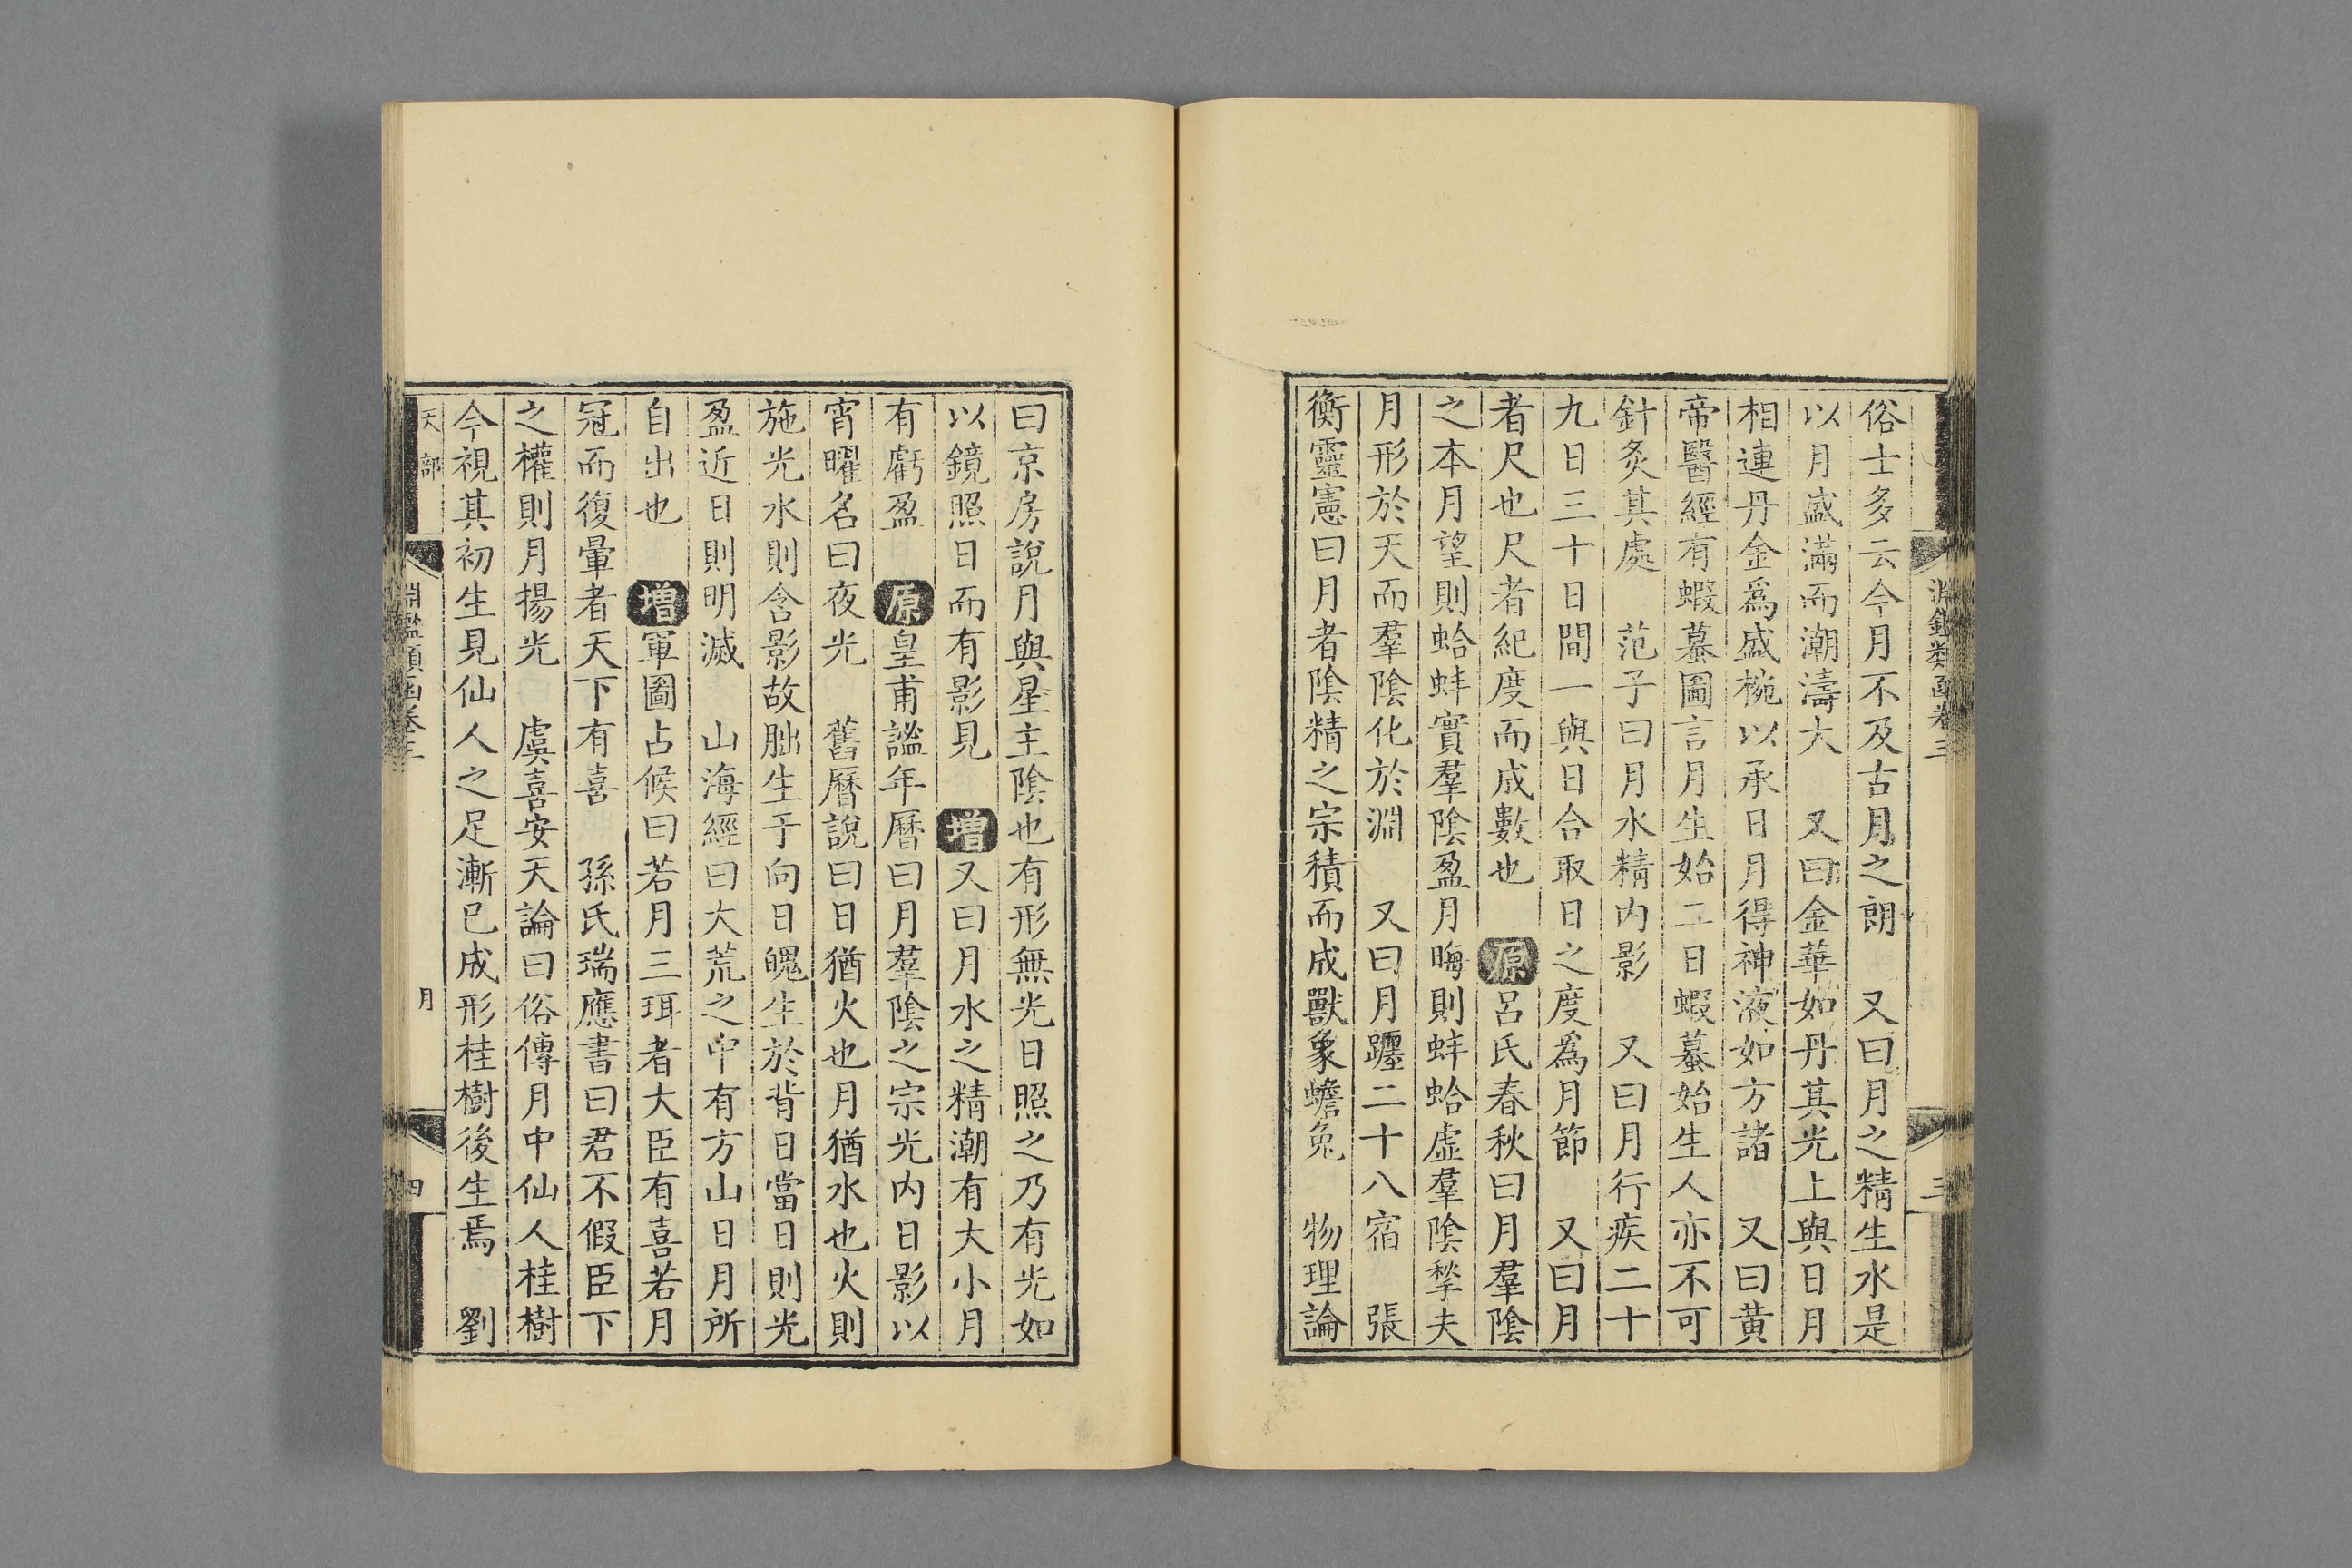 淵鑑類函卷三
三
俗士多云今月不及古月之朗　又曰月之精生水是
以月盛滿而潮濤大　又曰金華如丹其光上與日月
相連丹金爲盛椀以承日月得神液如方諸　又曰黃
帝醫經有蝦蟇圖言月生始二日蝦蟇始生人亦不可
針灸其處　范子曰月水精内影　又曰月行疾二十
九日三十日間一與日合取日之度爲月節　又曰月
者尺也尺者紀度而成數也　原呂氏春秋曰月羣陰
之本月望則蛤蚌實羣陰盈月晦則蚌蛤虛羣陰揫夫
月形於天而羣陰化於淵　又曰月躔二十八宿　張
衡靈憲曰月者陰精之宗積而成獸象蟾兔　物理論
曰京房說月與星主陰也有形無光日照之乃有光如
以鏡照日而有影見　增又曰月水之精潮有大小月
有虧盈　原皇甫謐年曆曰月羣陰之宗光内日影以
宵曜名曰夜光　舊曆說曰日猶火也月猶水也火則
施光水則含影故朏生于向日魄生於背日當日則光
盈近日則明滅　山海經曰大荒之中有方山日月所
自出也　增軍圖占候曰若月三珥者大臣有喜若月
冠而復暈者天下有喜　孫氏瑞應書曰君不假臣下
之權則月揚光　虞喜安天論曰俗傳月中仙人桂樹
今視其初生見仙人之足漸已成形桂樹後生焉　劉
天部
淵鑑類函卷三
月
四